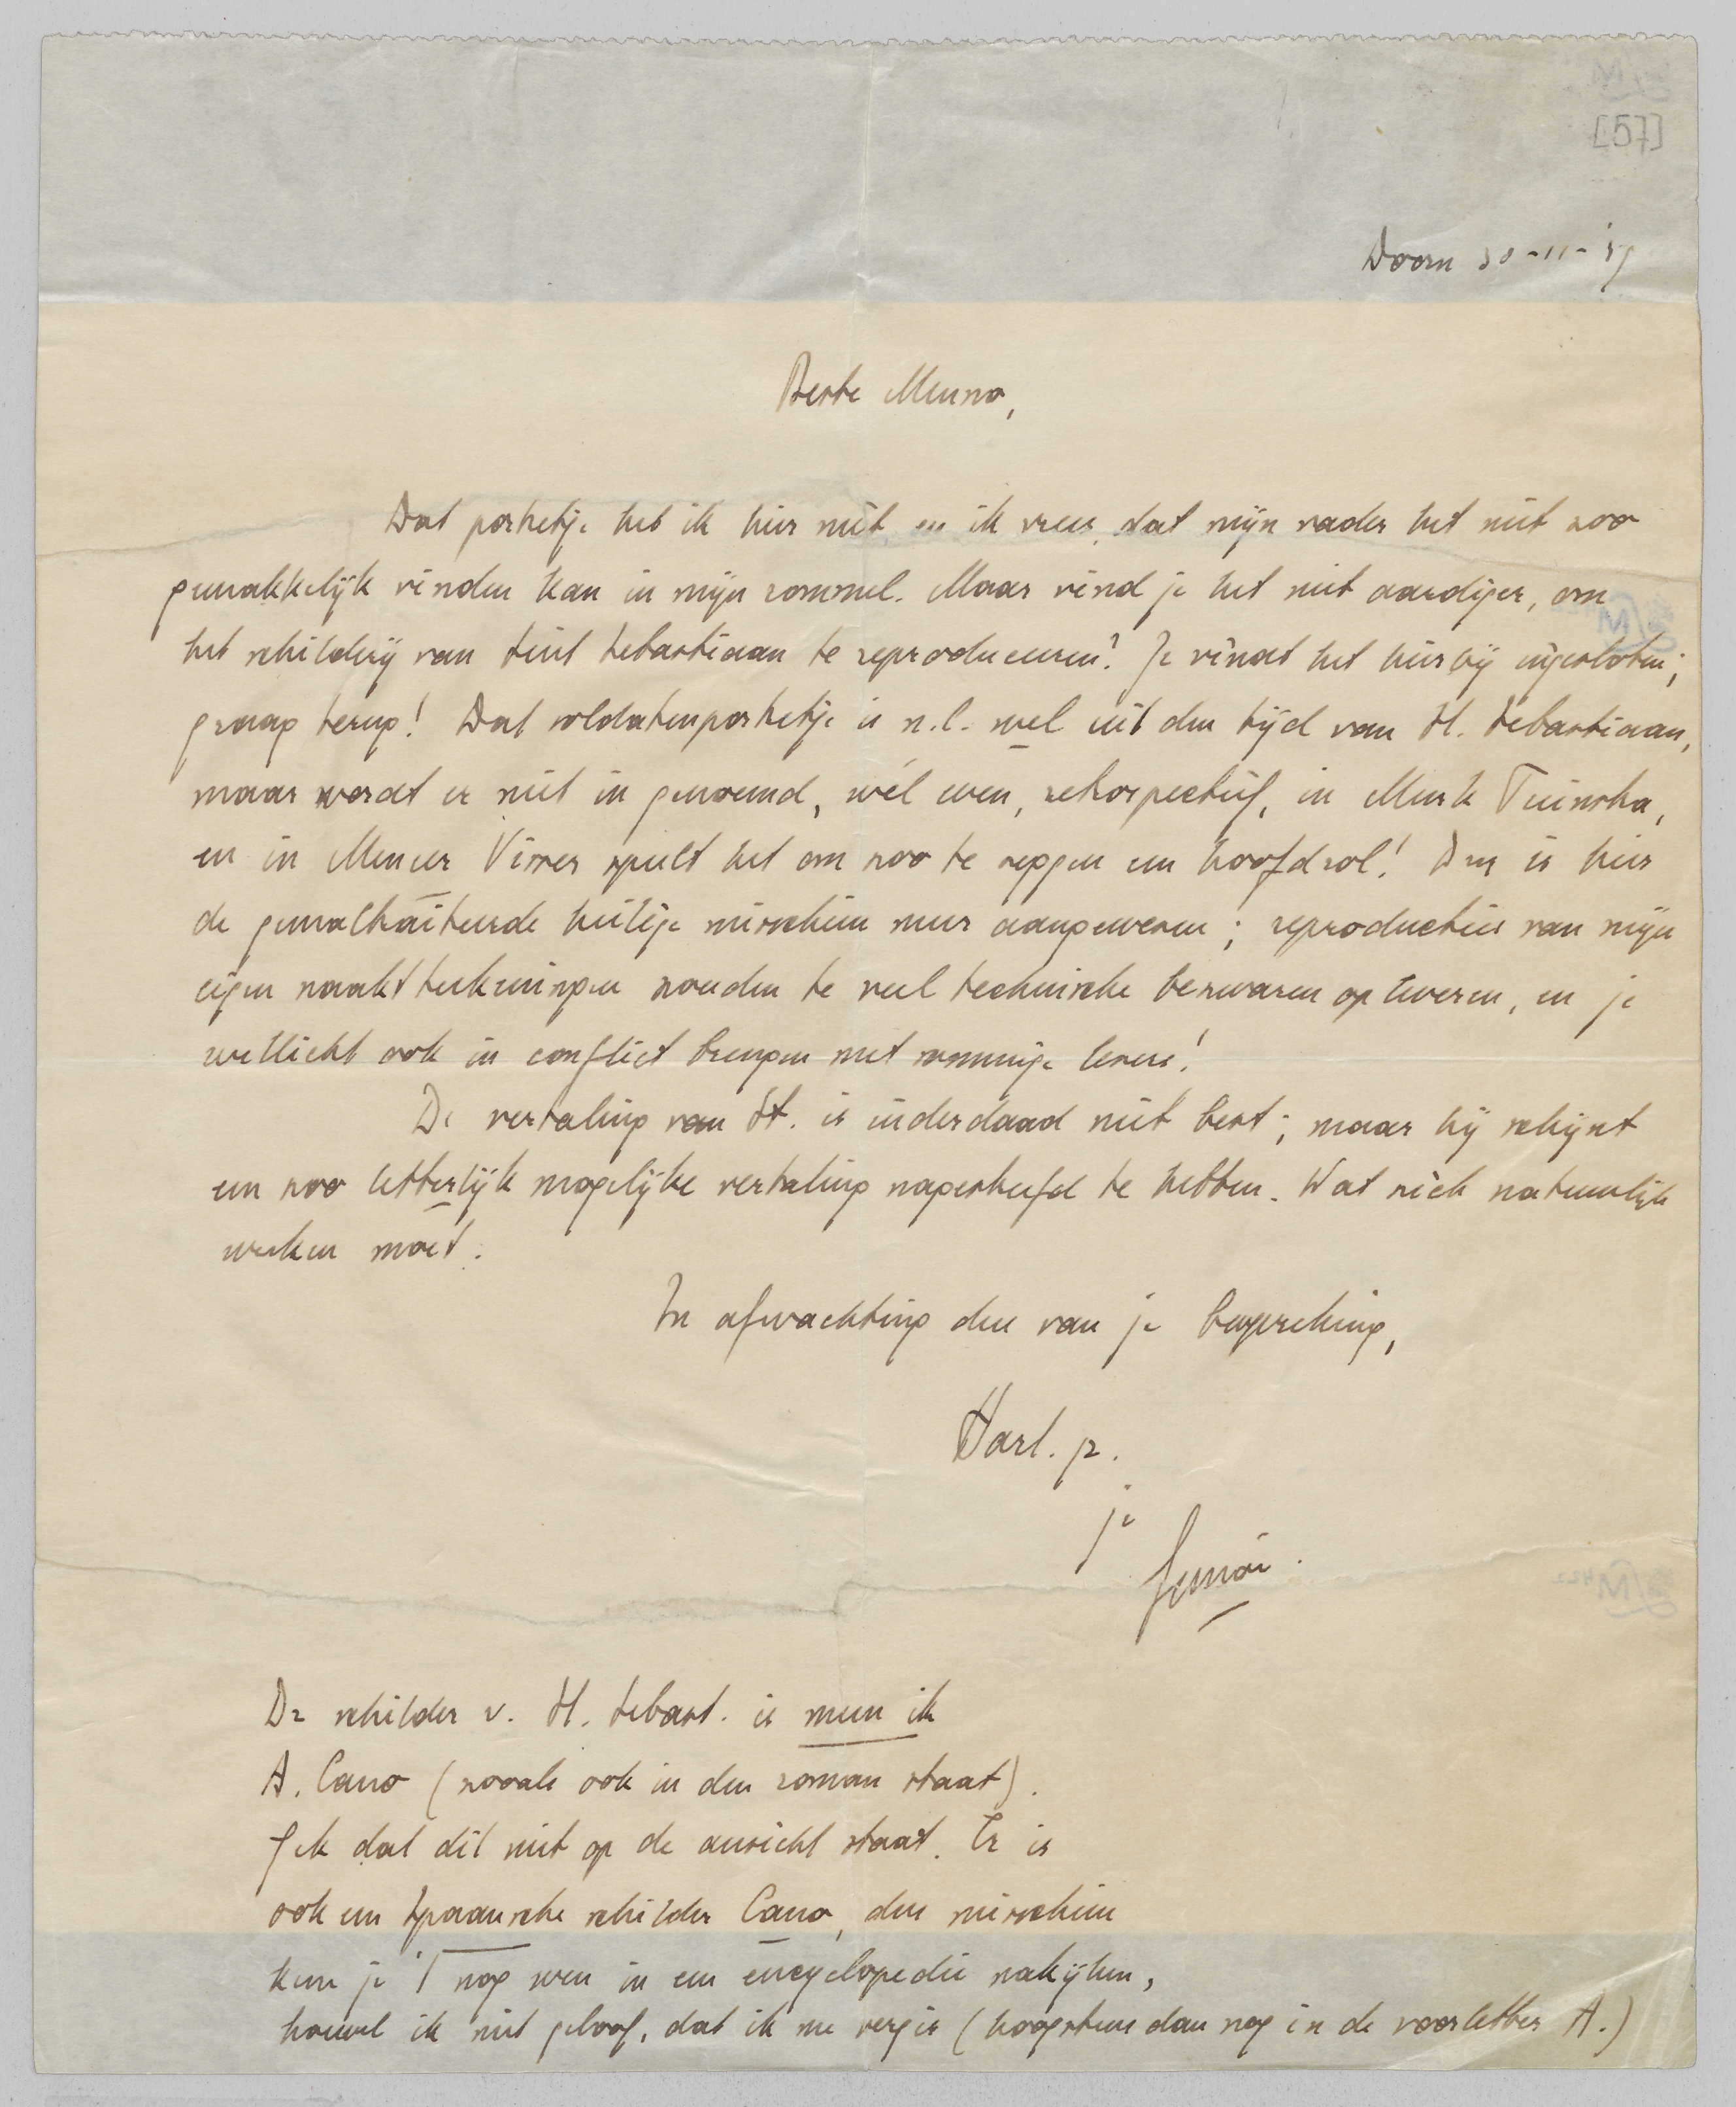 [57]
Doorn 30-11-'39
Beste Menno,
Dat portretje heb ik hier niet, en ik vrees, dat mijn vader het niet zoo
gemakkelijk vinden kan in mijn rommel. Maar vind je het niet aardiger, om
het schilderij van Sint Sebastiaan te reproduceeren? Je vindt het hierbij ingesloten;
graag terug! Dat soldatenportretje is n.l. wel uit den tijd van St. Sebastiaan,
maar wordt er niet in genoemd, wél even, retrospectief, in Else Böhler,
en in Meneer Visser speelt het om zoo te zeggen een hoofdrol! Dus is hier
de gemaltraiteerde heilige misschien meer aangewezen; reproducties van mijn
eigen naaktteekeningen zouden te veel technische bezwaren opleveren, en je
wellicht ook in conflict brengen met sommige lezers!
De vertaling van St. is inderdaad niet best; maar hij schijnt
een zoo letterlijk mogelijke vertaling nagestreefd te hebben. Wat zich natuurlijk
wreken moet.
In afwachting dus van je bespreking,
Hart. gr.
je
Simon.
De schilder v. St. Sebast. is meen ik
A. Cano (zooals ook in den roman staat).
Gek dat dit niet op de ansicht staat. Er is
ook een Spaansche schilder Cano, dus misschien
kun je 't nog even in een encyclopedie nakijken,
hoewel ik niet geloof, dat ik me vergis (hoogstens dan nog in de voorletter A.)